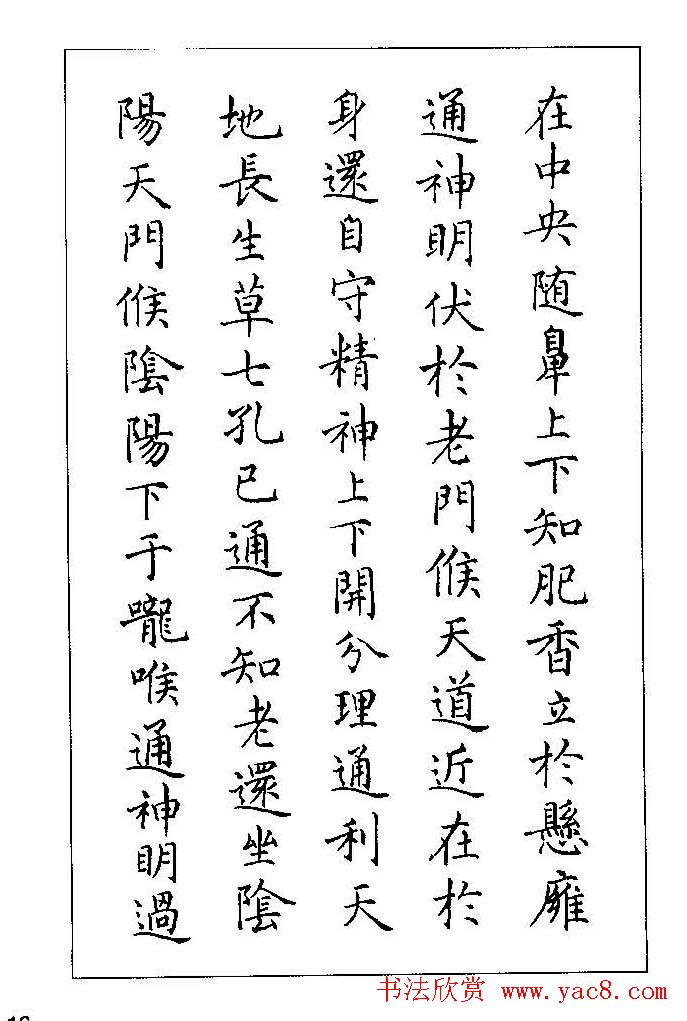 在中央随鼻上下知肥香立於懸廱
通神明伏於老門候天道近在於
身還自守精神上下開分理通利天
地長生草七孔已通不知老還坐陰
陽天門候陰陽下于嚨喉通神明過
书法欣赏 www.yac8.com